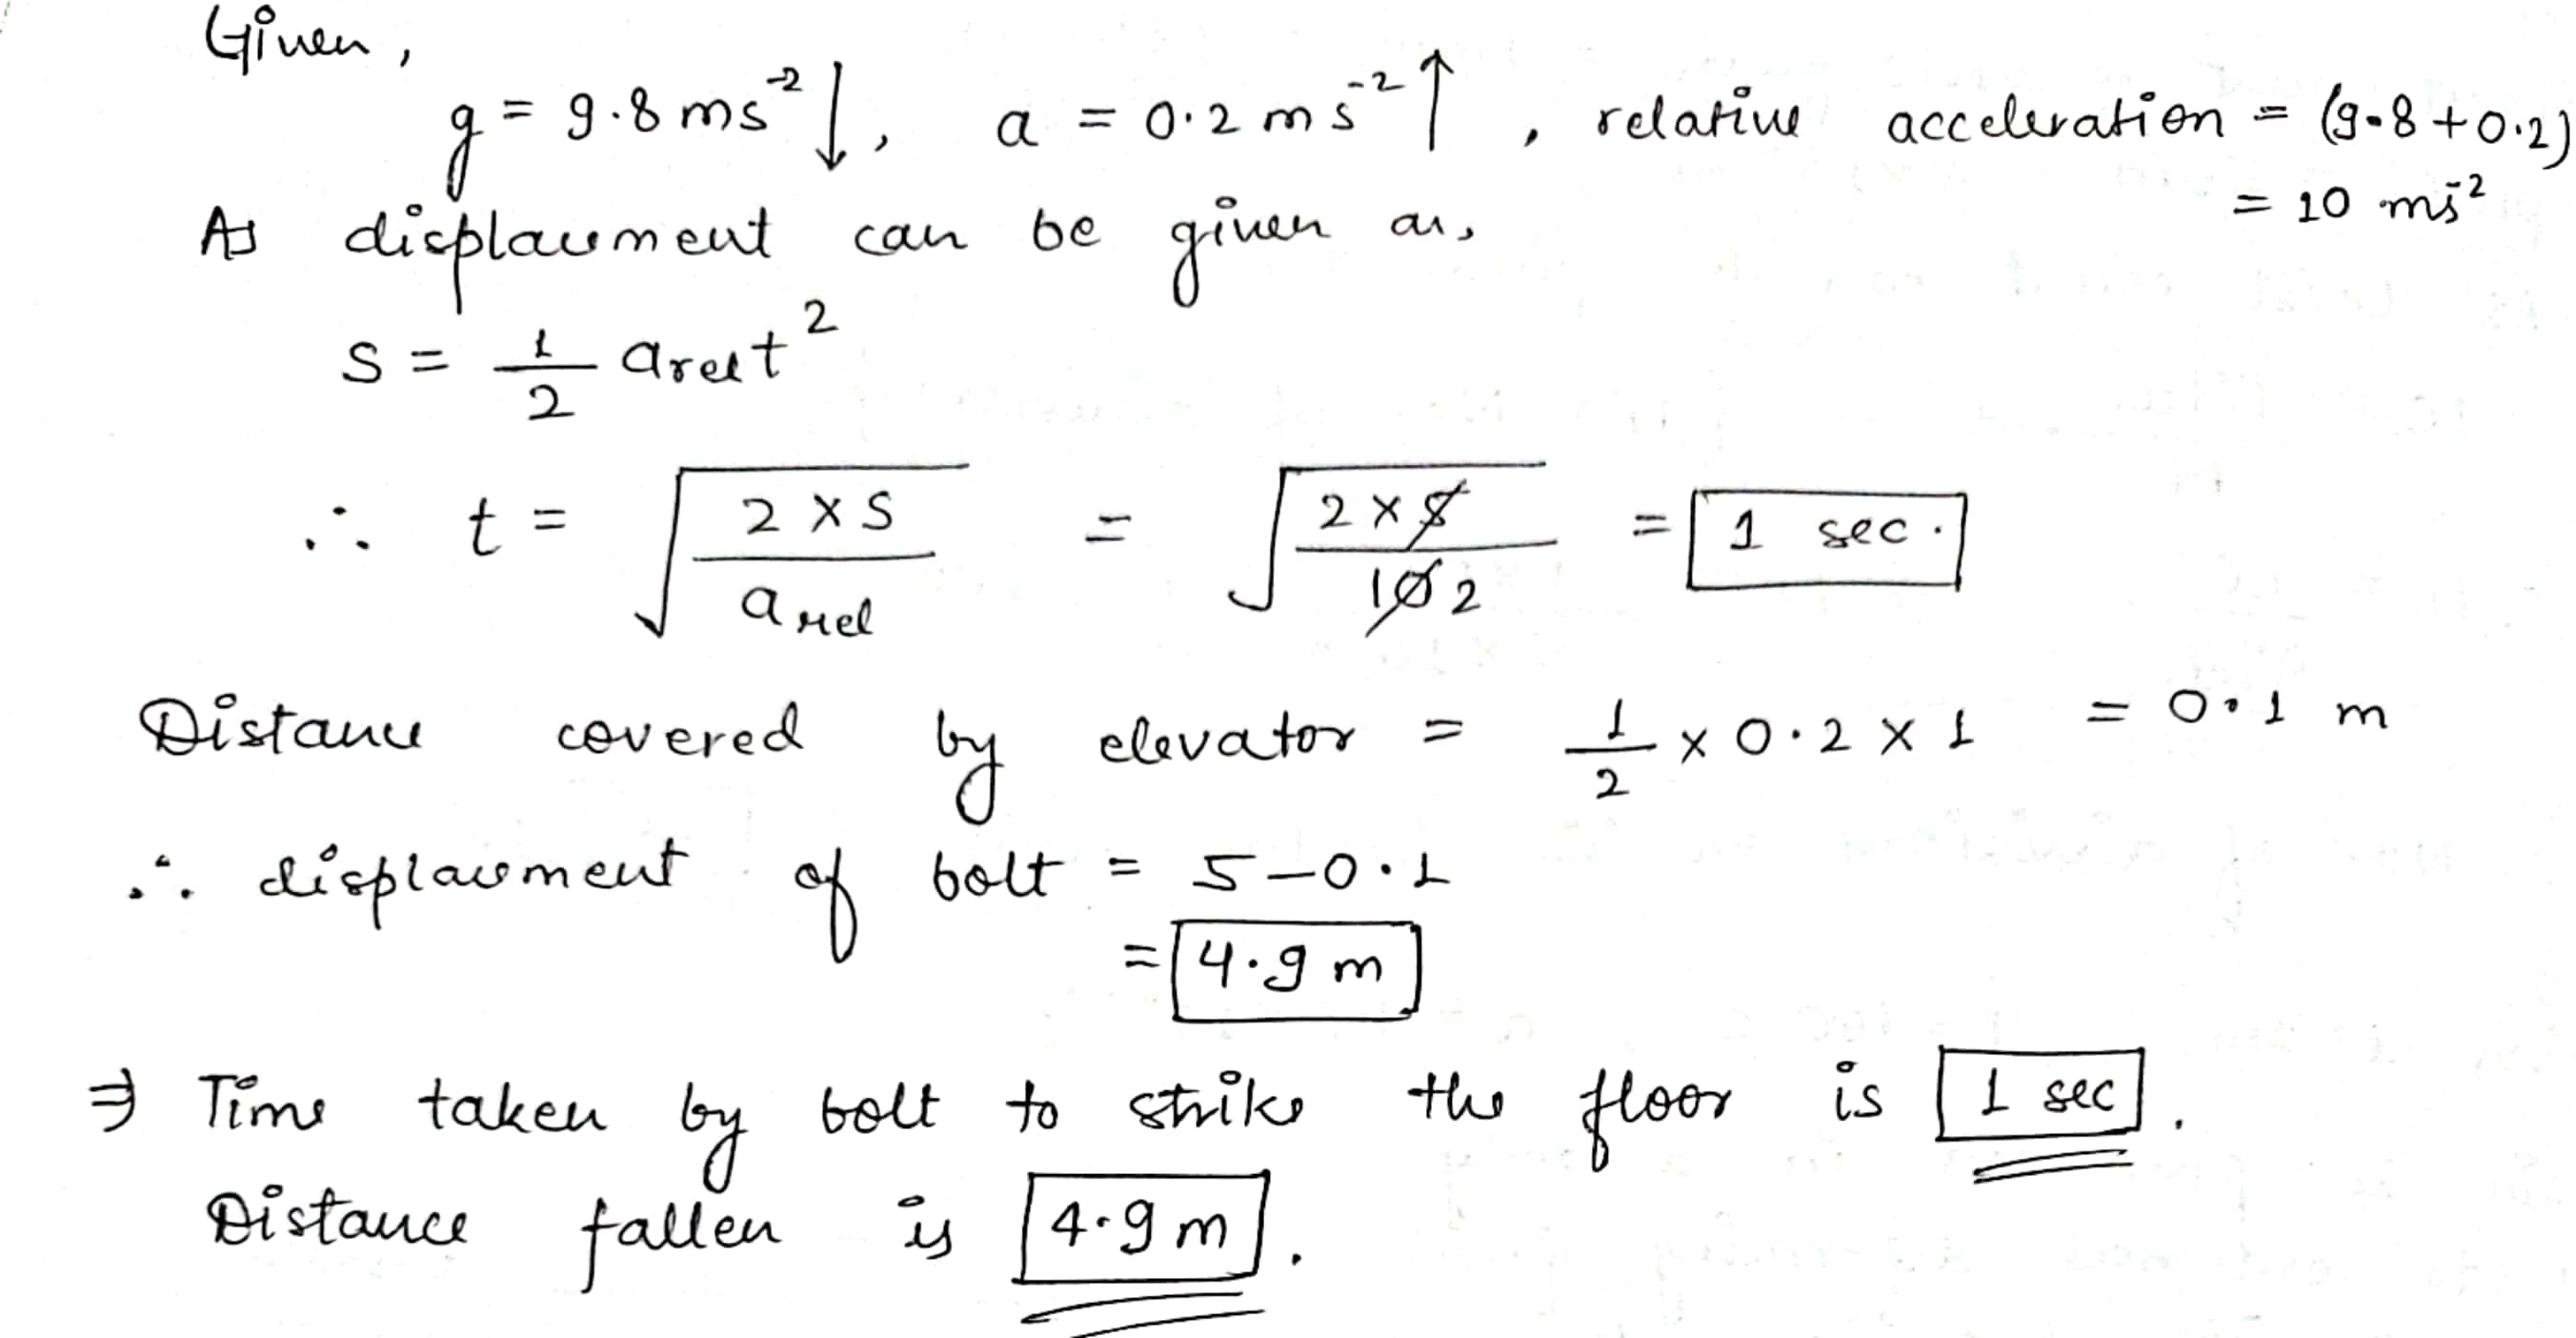 Given,
g = 9.8 ms⁻² ↓, a = 0.2 ms⁻² ↑, relative acceleration = (9.8 + 0.2)
= 10 ms⁻²
As displacement can be given as,
S = 1/2 a_rel t²
∴ t = √(2 × S / a_rel) = √(2 × 5 / 10 2) = 1 sec.
Distance covered by elevator = 1/2 × 0.2 × 1 = 0.1 m
∴ displacement of bolt = 5 – 0.1
= 4.9 m
⇒ Time taken by bolt to strike the floor is 1 sec.
Distance fallen is 4.9 m.